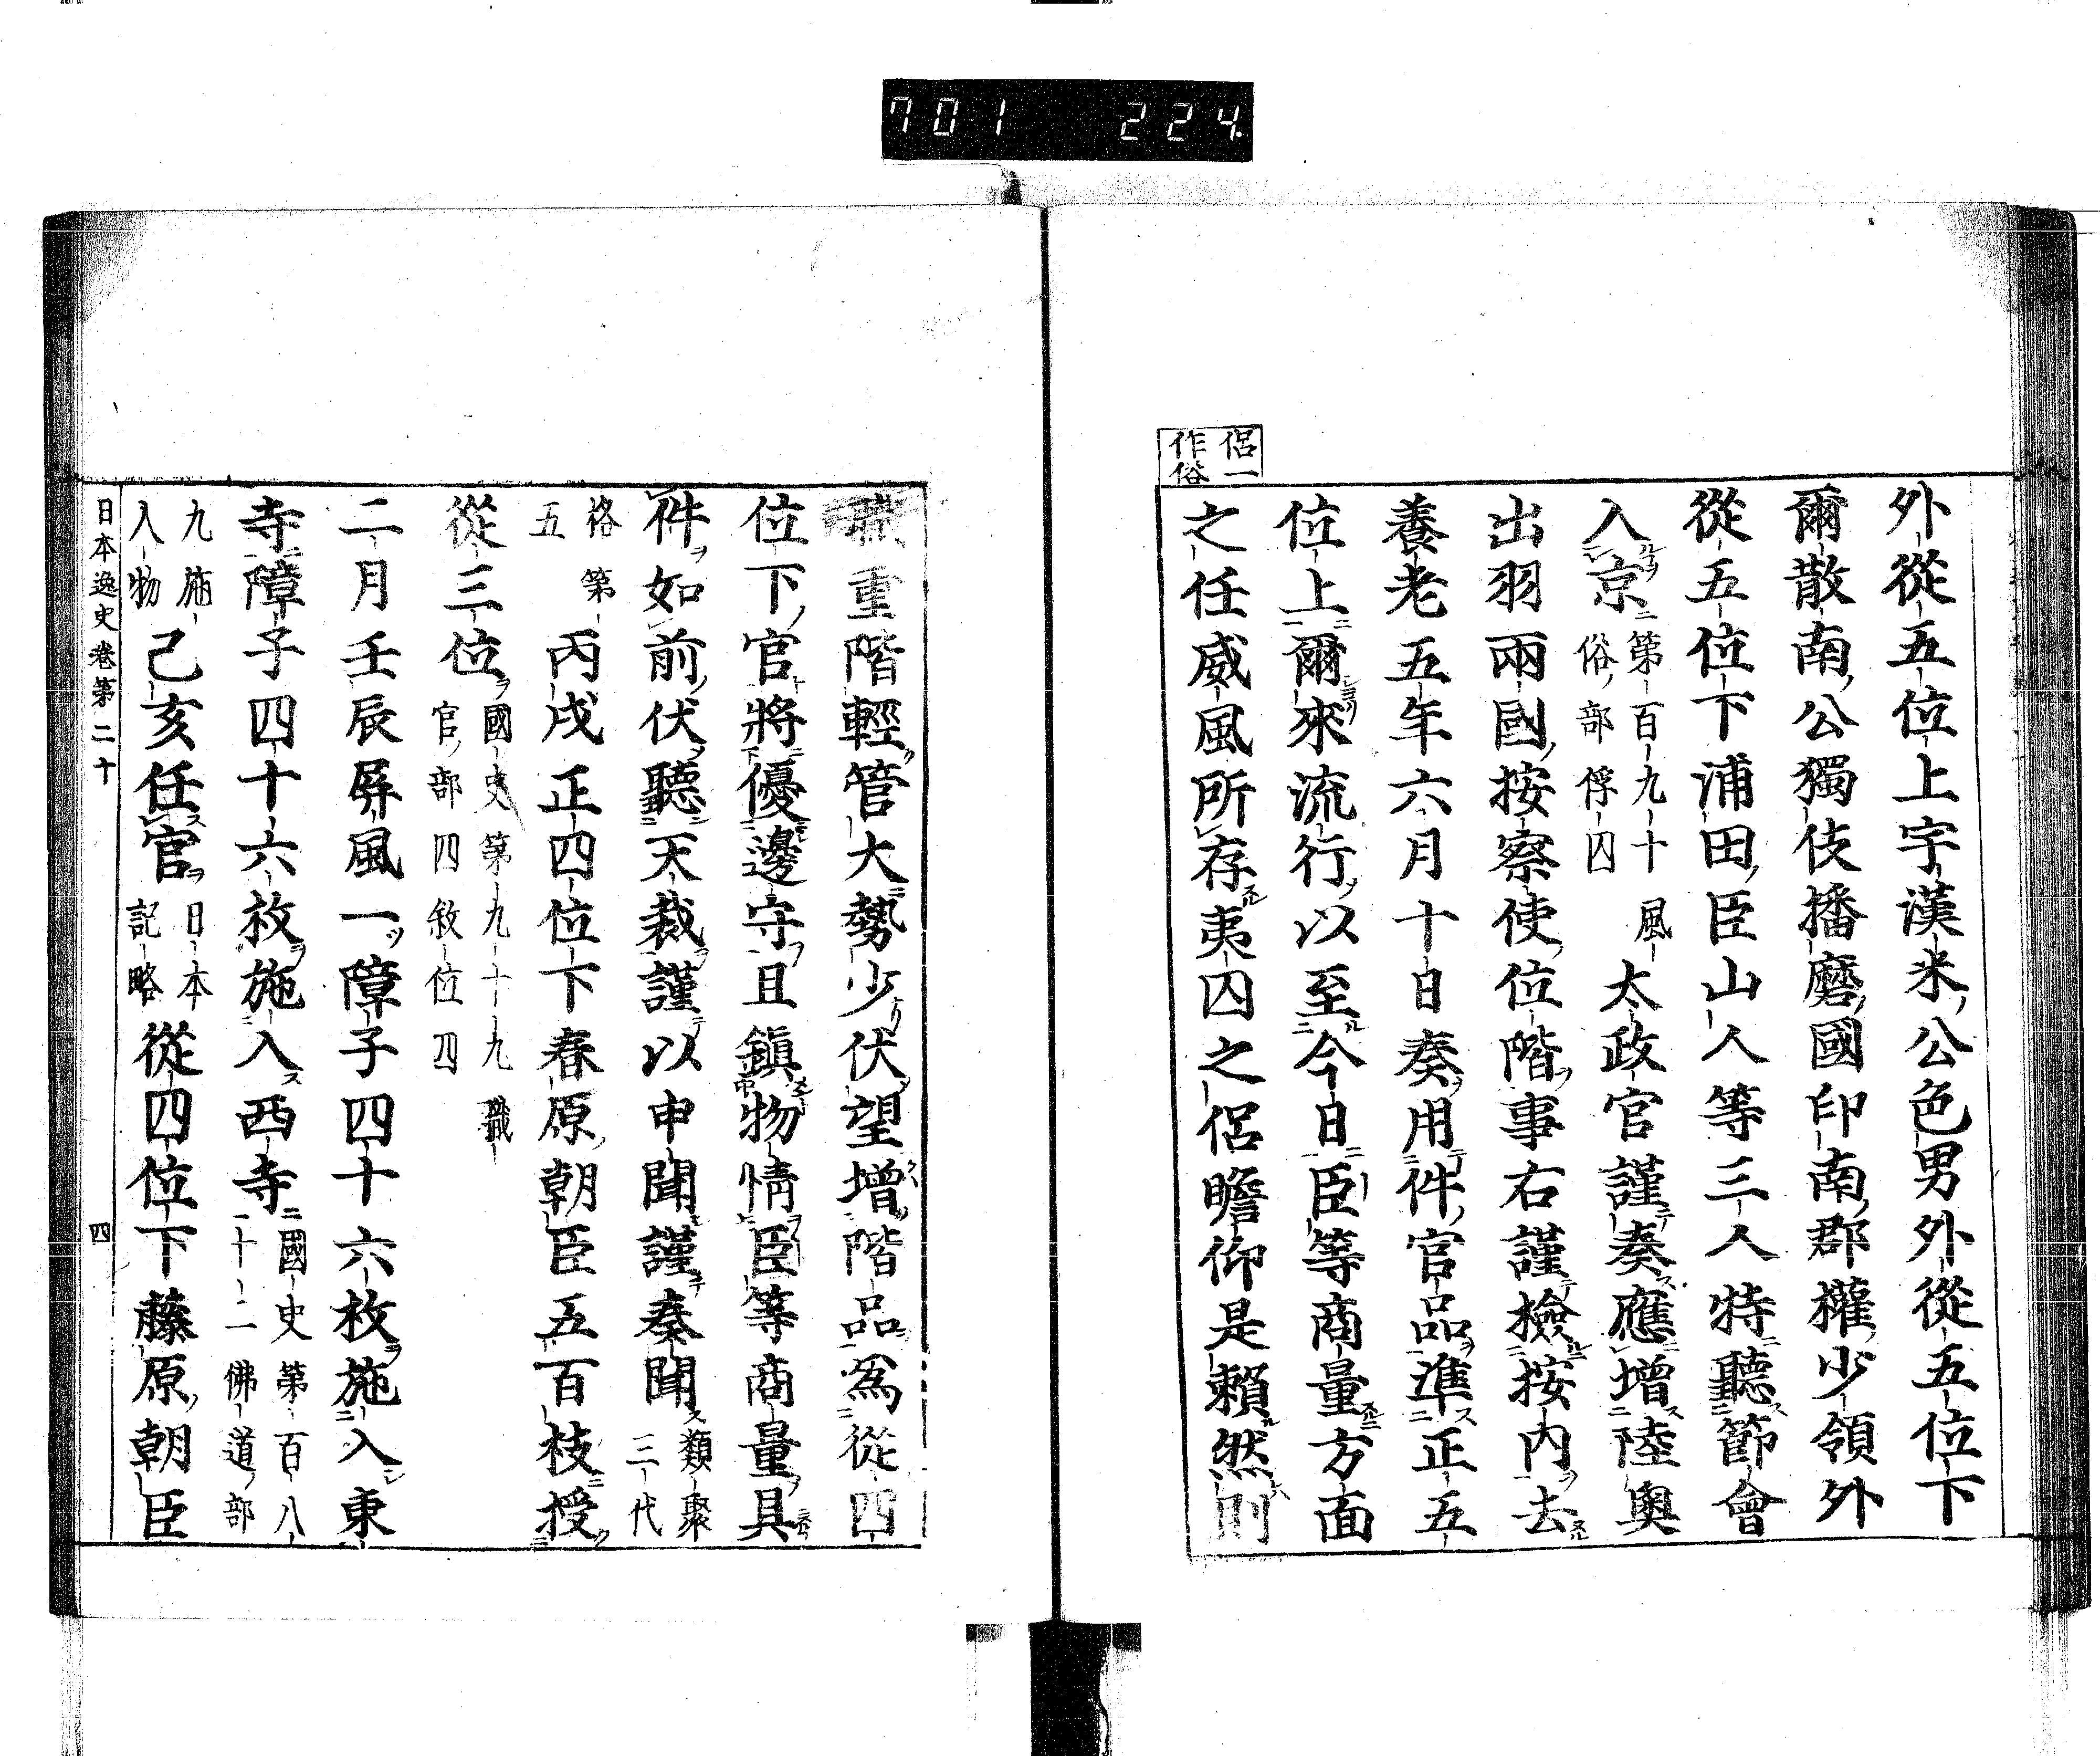 701 224
侶一
作俗
外從五位上宇漢米公色男外從五位下
爾散南公獨伎播磨國印南郡權少領外
從五位下浦田臣山人等三人特聽節會
入京第百九十風俗部俘囚太政官謹奏應增陸奧
出羽兩國按察使位階事右謹檢按內去
養老五年六月十日奏用件官品準正五
位上爾來流行以至今日臣等商量方面
之任威風所存夷囚之侶瞻仰是賴然則
重階輕管大勢少伏望增階品爲從四
位下官將優邊守且鎭物情臣等商量具
件如前伏聽天裁謹以申聞謹奏聞類聚三代
格第五丙戌正四位下春原朝臣五百枝授
從三位國史第九十九職官部四敘位四
二月壬辰屏風一障子四十六枚施入東
寺障子四十六枚施入西寺國史第百八十二佛道部
九施入物己亥任官日本記略從四位下藤原朝臣
日本逸史卷第二十 四